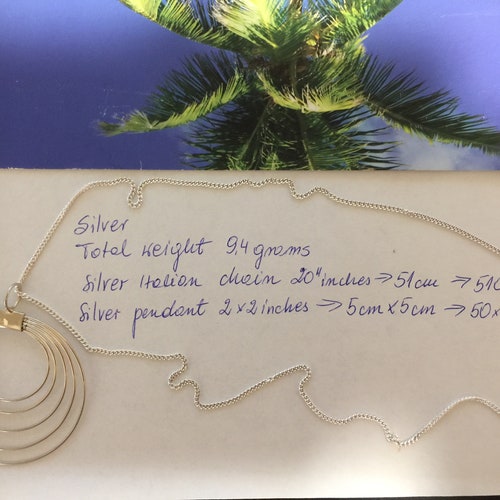 Silver
Total weight 9,4 grams
Silver Italian chain 20" inches → 51cm → 510
Silver pendant 2 x 2 inches → 5cm x 5cm → 50 x